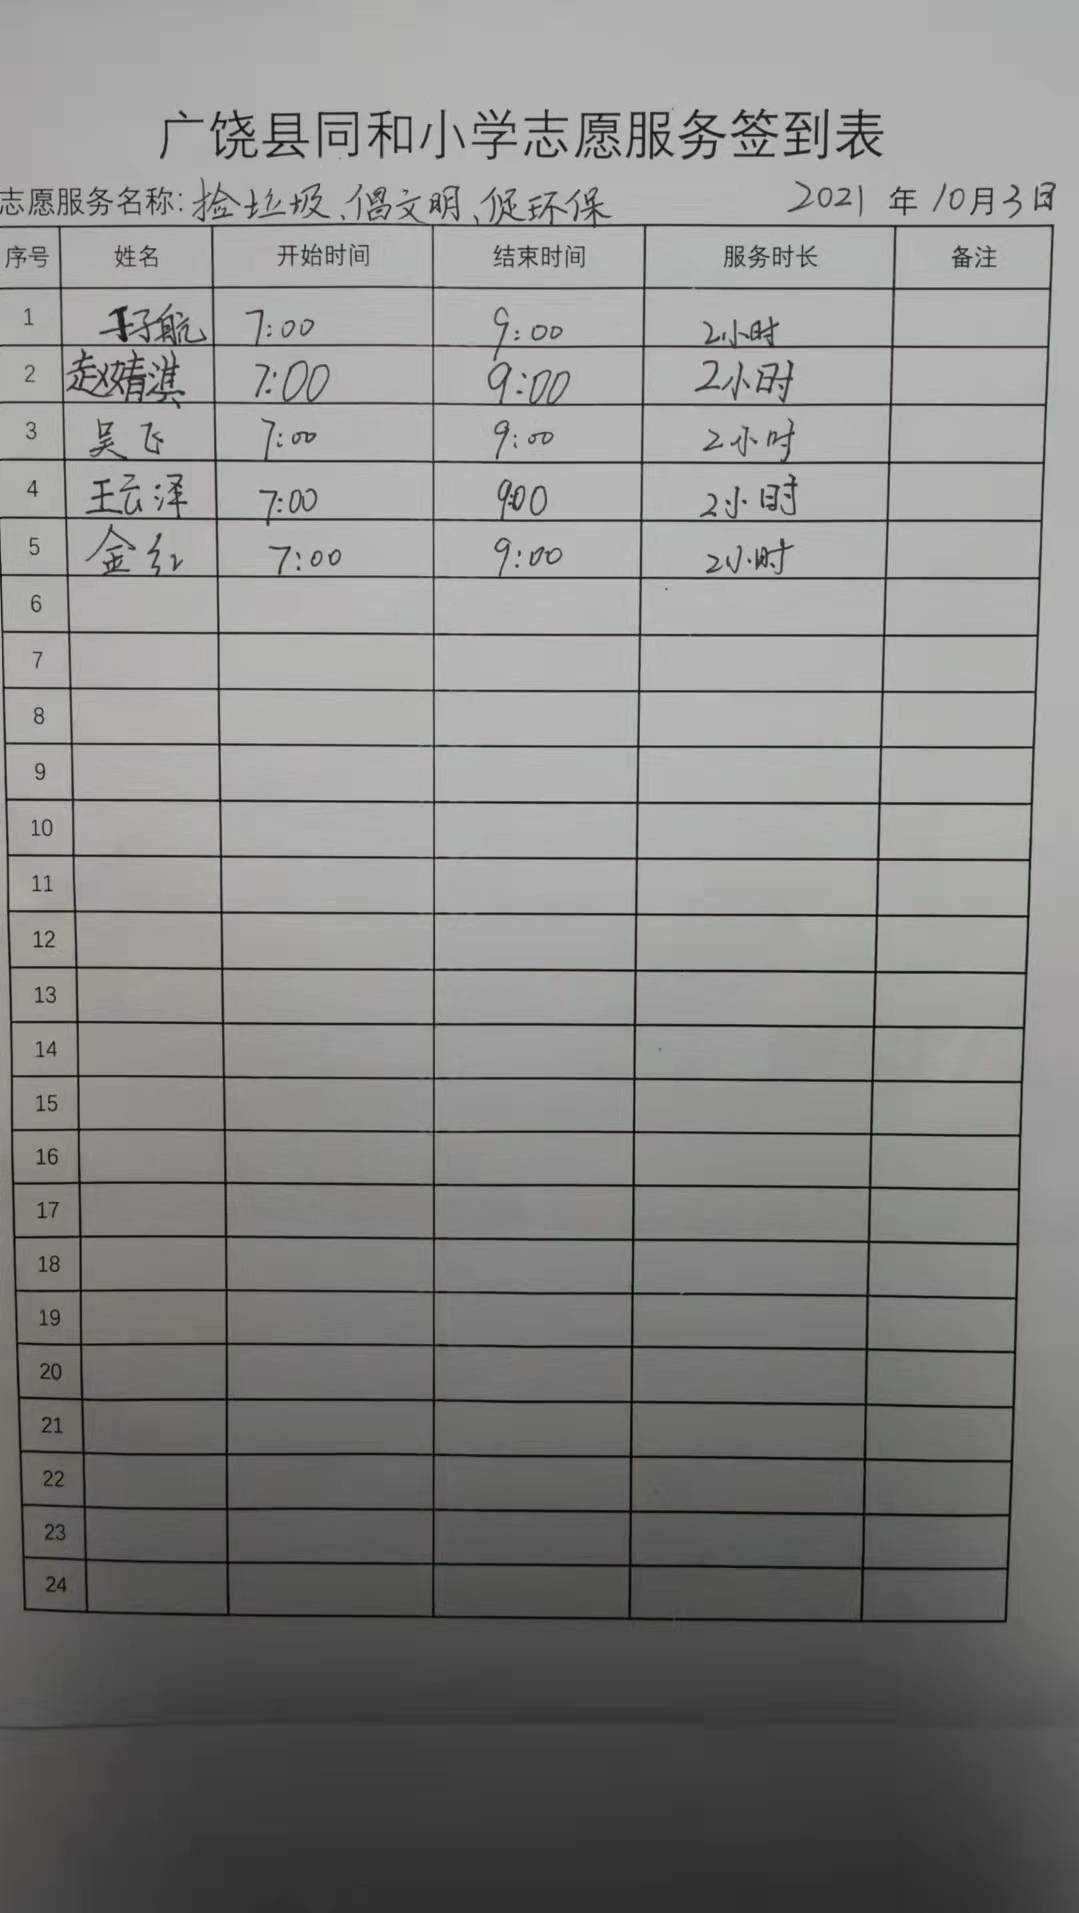 广饶县同和小学志愿服务签到表
志愿服务名称: 捡垃圾、倡文明、促环保 2021 年 10月3日
序号 姓名 开始时间 结束时间 服务时长 备注
1 子航 7:00 9:00 2小时
2 赵婧淇 7:00 9:00 2小时
3 吴飞 7:00 9:00 2小时
4 王云泽 7:00 9:00 2小时
5 金红 7:00 9:00 2小时
6
7
8
9
10
11
12
13
14
15
16
17
18
19
20
21
22
23
24